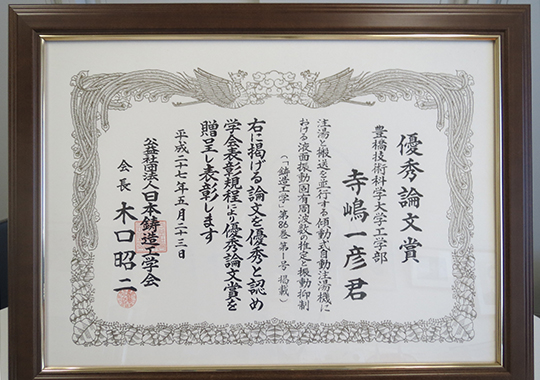 優秀論文賞
豊橋技術科学大学工学部
寺嶋一彦君
注湯と搬送を並行する傾動式自動注湯機に
おける液面振動固有周波数の推定と振動抑制
(「鋳造工学」第86巻第1号 掲載)
右に掲げる論文を優秀と認め
学会表彰規程により優秀論文賞を
贈呈し表彰します
平成二十七年五月二十三日
公益社団法人日本鋳造工学会
会長 木口昭二